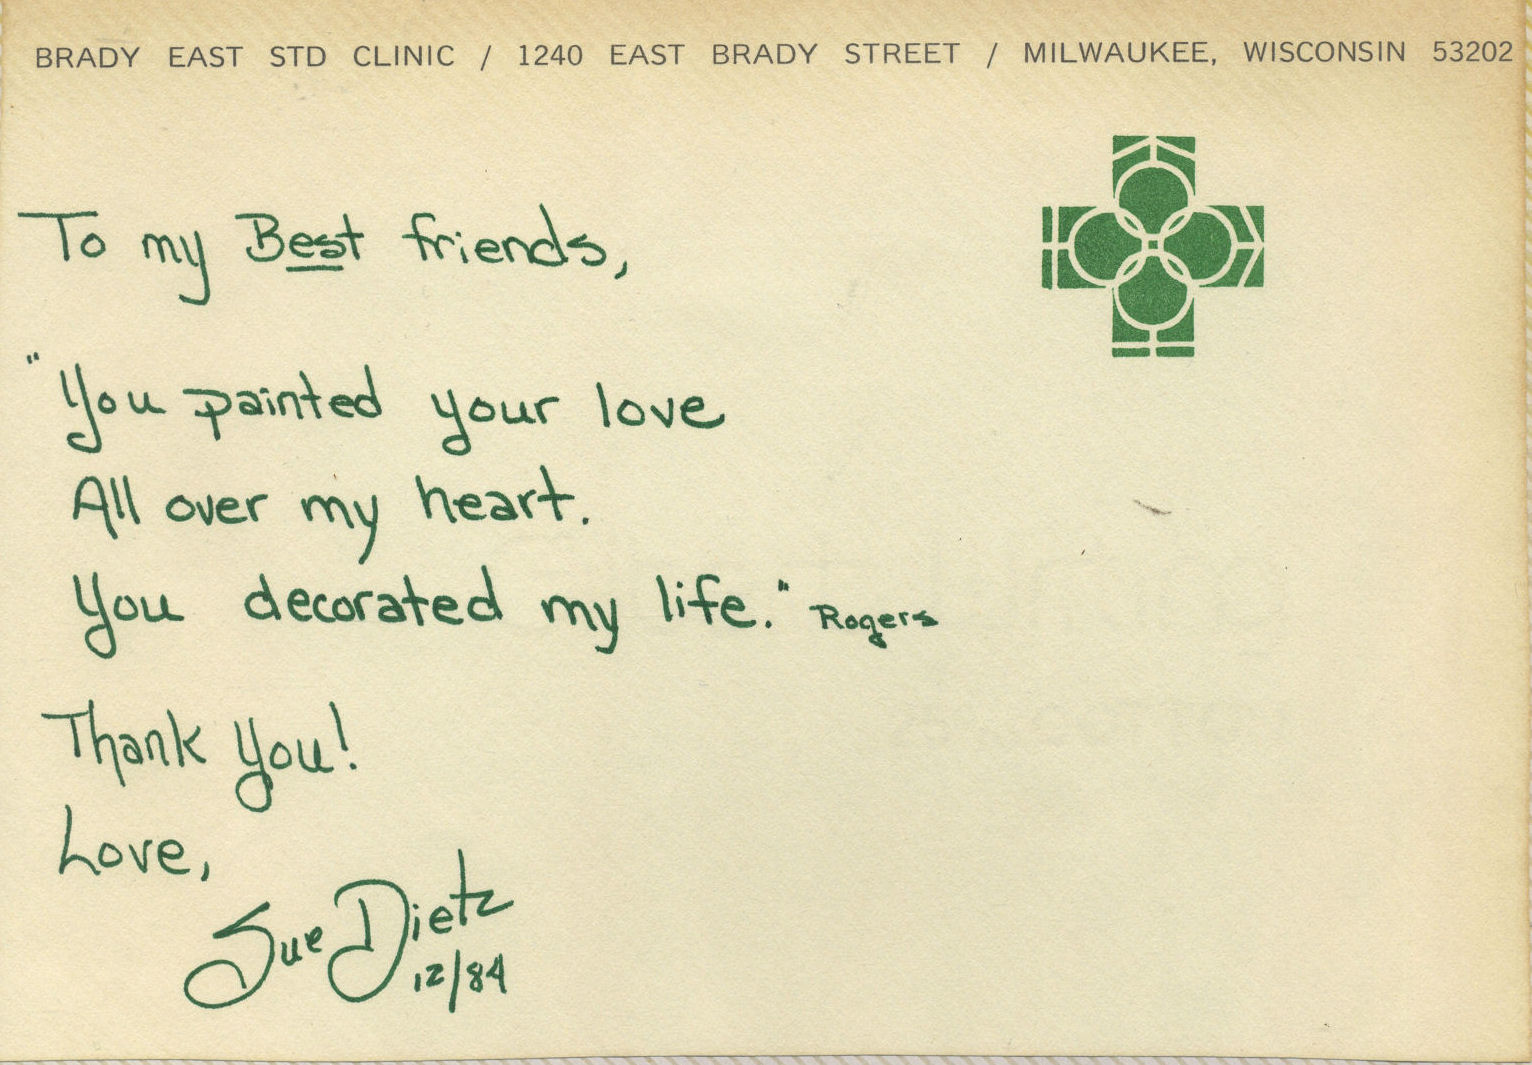 BRADY EAST STD CLINIC / 1240 EAST BRADY STREET / MILWAUKEE, WISCONSIN 53202
To my Best friends,
"You painted your love
All over my heart.
You decorated my life." Rogers
Thank You!
Love,
Sue Dietz
12/84